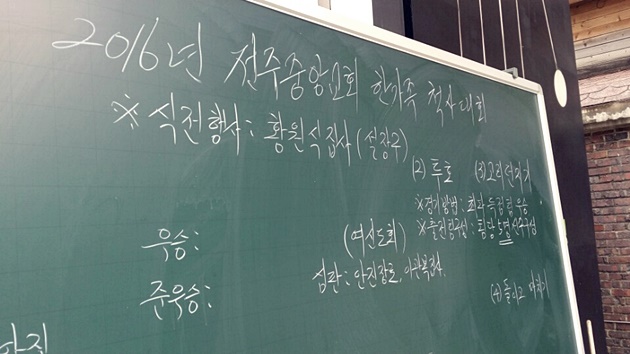 2016년 전주중앙교회 한가족 척사대회
※ 식전행사 : 황원식집사 (설장구)
(2) 투호 (3) 고리던지기
※경기방법 : 최다 득점팀 우승
※출전팀구성 : 팀당
우승:
(여선도회)
준우승:
심판 : 안진장로,
(4) 돌이고